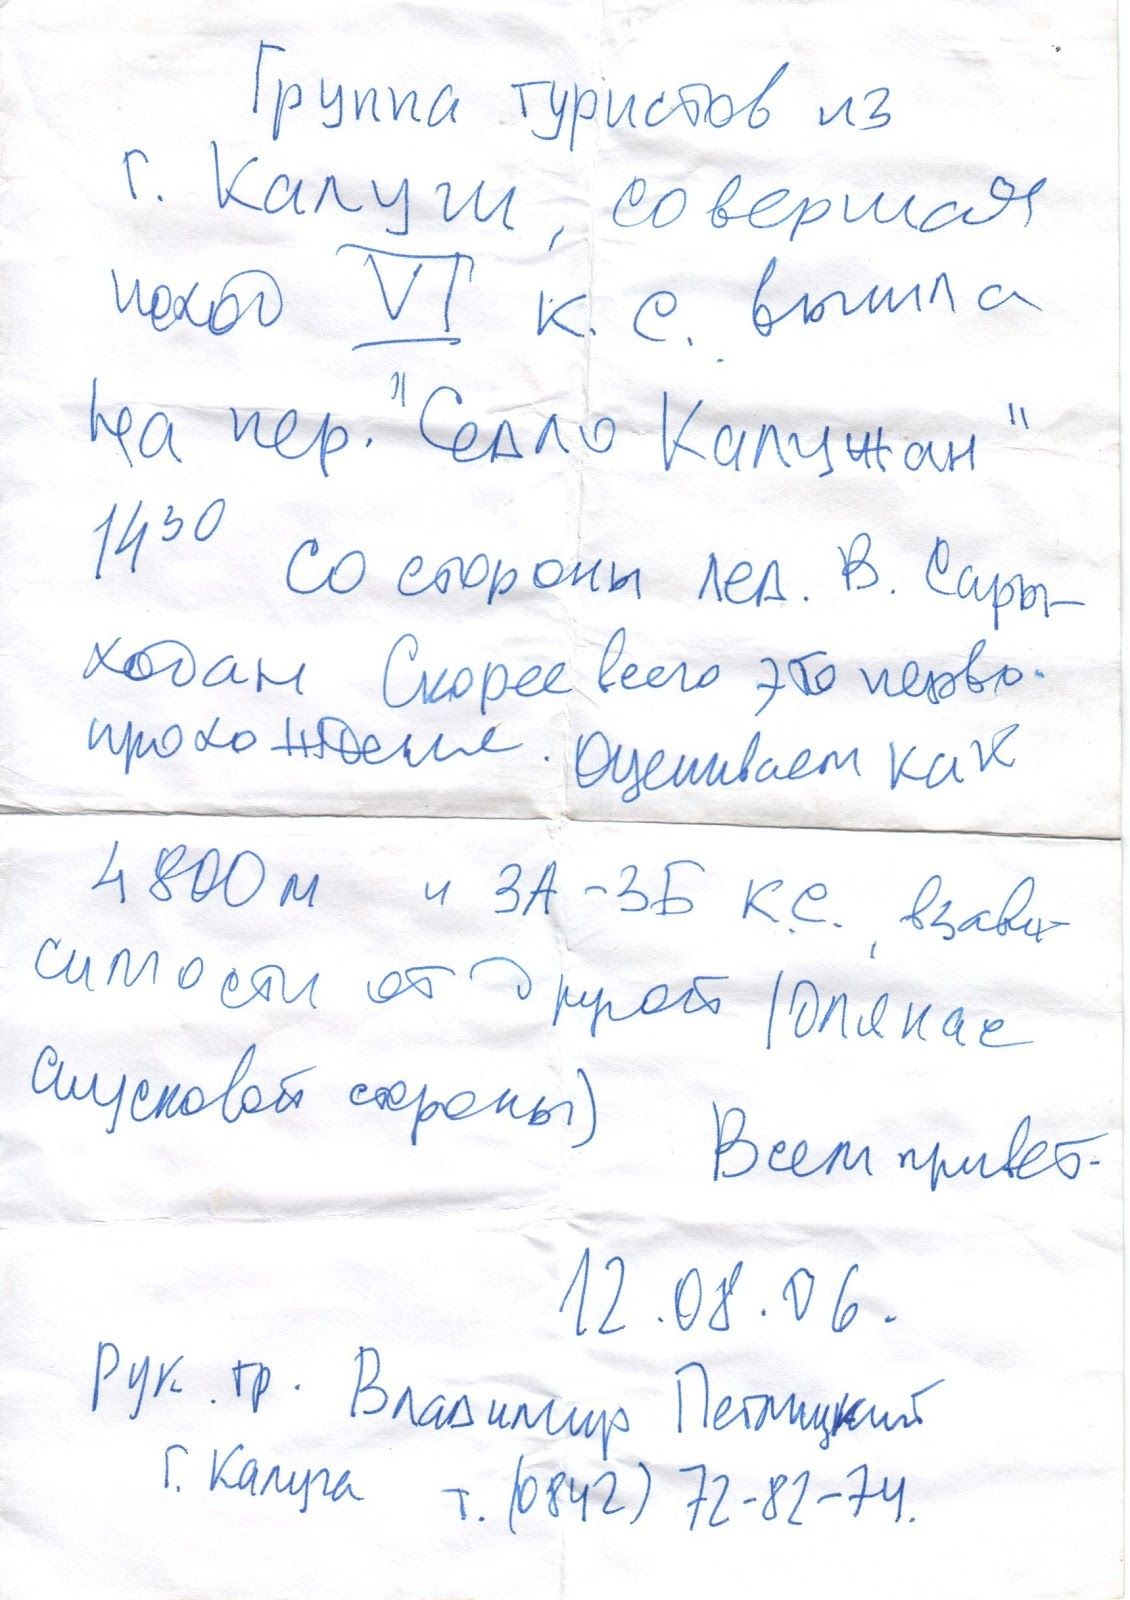 Группа туристов из
г. Калуги, совершая
поход VI к.с. вышла
на пер. "Седло Калужан"
14³⁰ со стороны лед. В. Сары-
ходан Скорее всего это перво-
прохождение. Оцениваем как
4800м и 3А-3Б к.с., взави-
симости от другой
спусковой стороны)
Всем привет.
12.08.06.
Рук. гр. Владимир Петлицкий
г. Калуга т. (0842) 72-82-74.